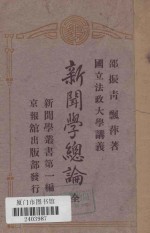 邵振青飄萍著
國立法政大學講義
新聞學總論 全
新聞學叢書第一編
京報館出版部發行
厦门市图书馆
2403987